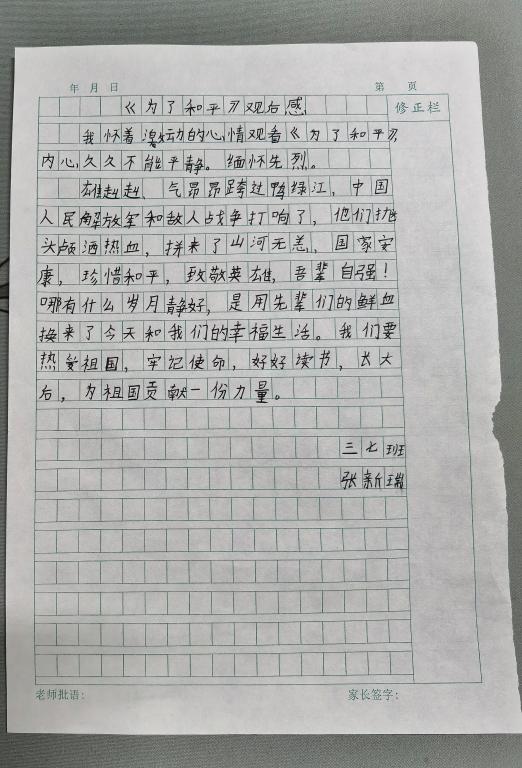 年 月 日 第 页
《为了和平》观后感 修正栏
我怀着激动的心情观看《为了和平》,
内心久久不能平静。缅怀先烈。
雄赳赳、气昂昂跨过鸭绿江,中国
人民解放军和敌人战争打响了,他们抛
头颅洒热血,拼来了山河无恙,国家安
康,珍惜和平,致敬英雄,吾辈自强!
哪有什么岁月静好,是用先辈们的鲜血
换来了今天和我们的幸福生活。我们要
热爱祖国,牢记使命,好好读书,长大
后,为祖国贡献一份力量。
三七班
张新瑞
老师批语: 家长签字: